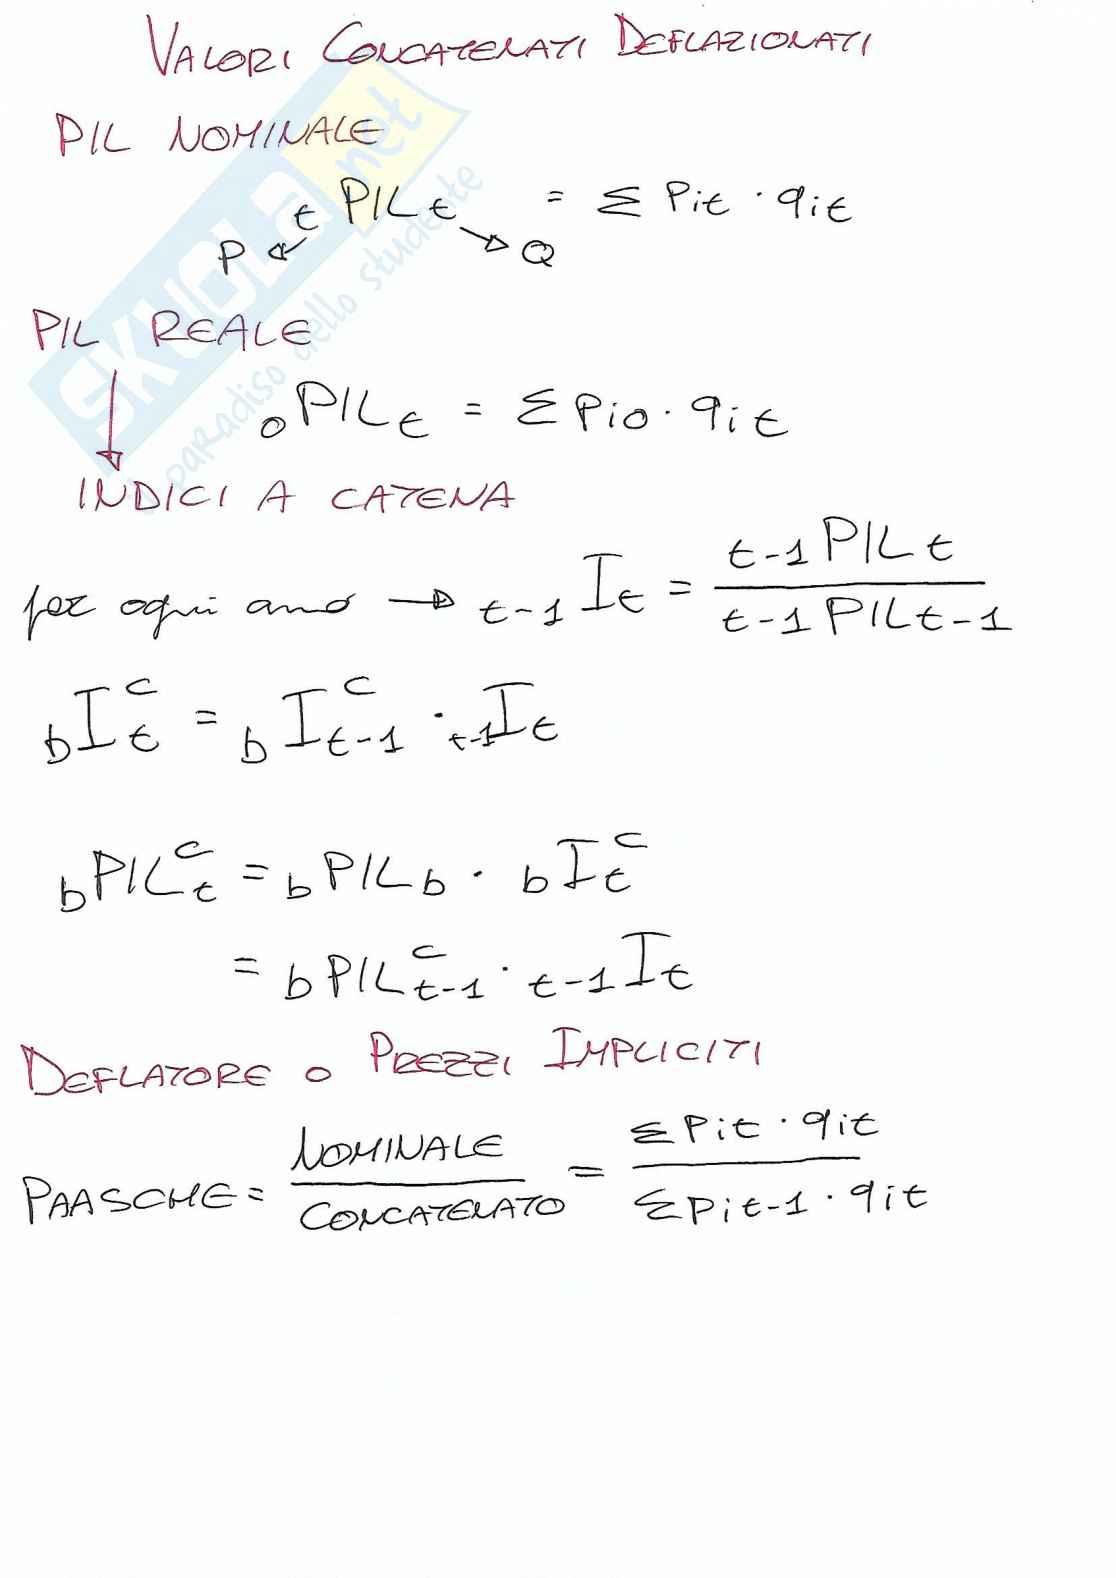 VALORI CONCATENATI DEFLAZIONATI
PIL NOMINALE
t PIL t = Σ Pit · qit
P Q
PIL REALE
0 PIL t = Σ Pi0 · qit
INDICI A CATENA
per ogni anno → t-1 I t = t-1 PIL t / t-1 PIL t-1
b I t^c = b I t-1^c · t-1 I t
b PIL t^c = b PIL b · b I t^c
= b PIL t-1^c · t-1 I t
DEFLATORE O PREZZI IMPLICITI
PAASCHE = NOMINALE / CONCATENATO = Σ Pit · qit / Σ Pit-1 · qit
SKUOLA.net
il paradiso dello studente